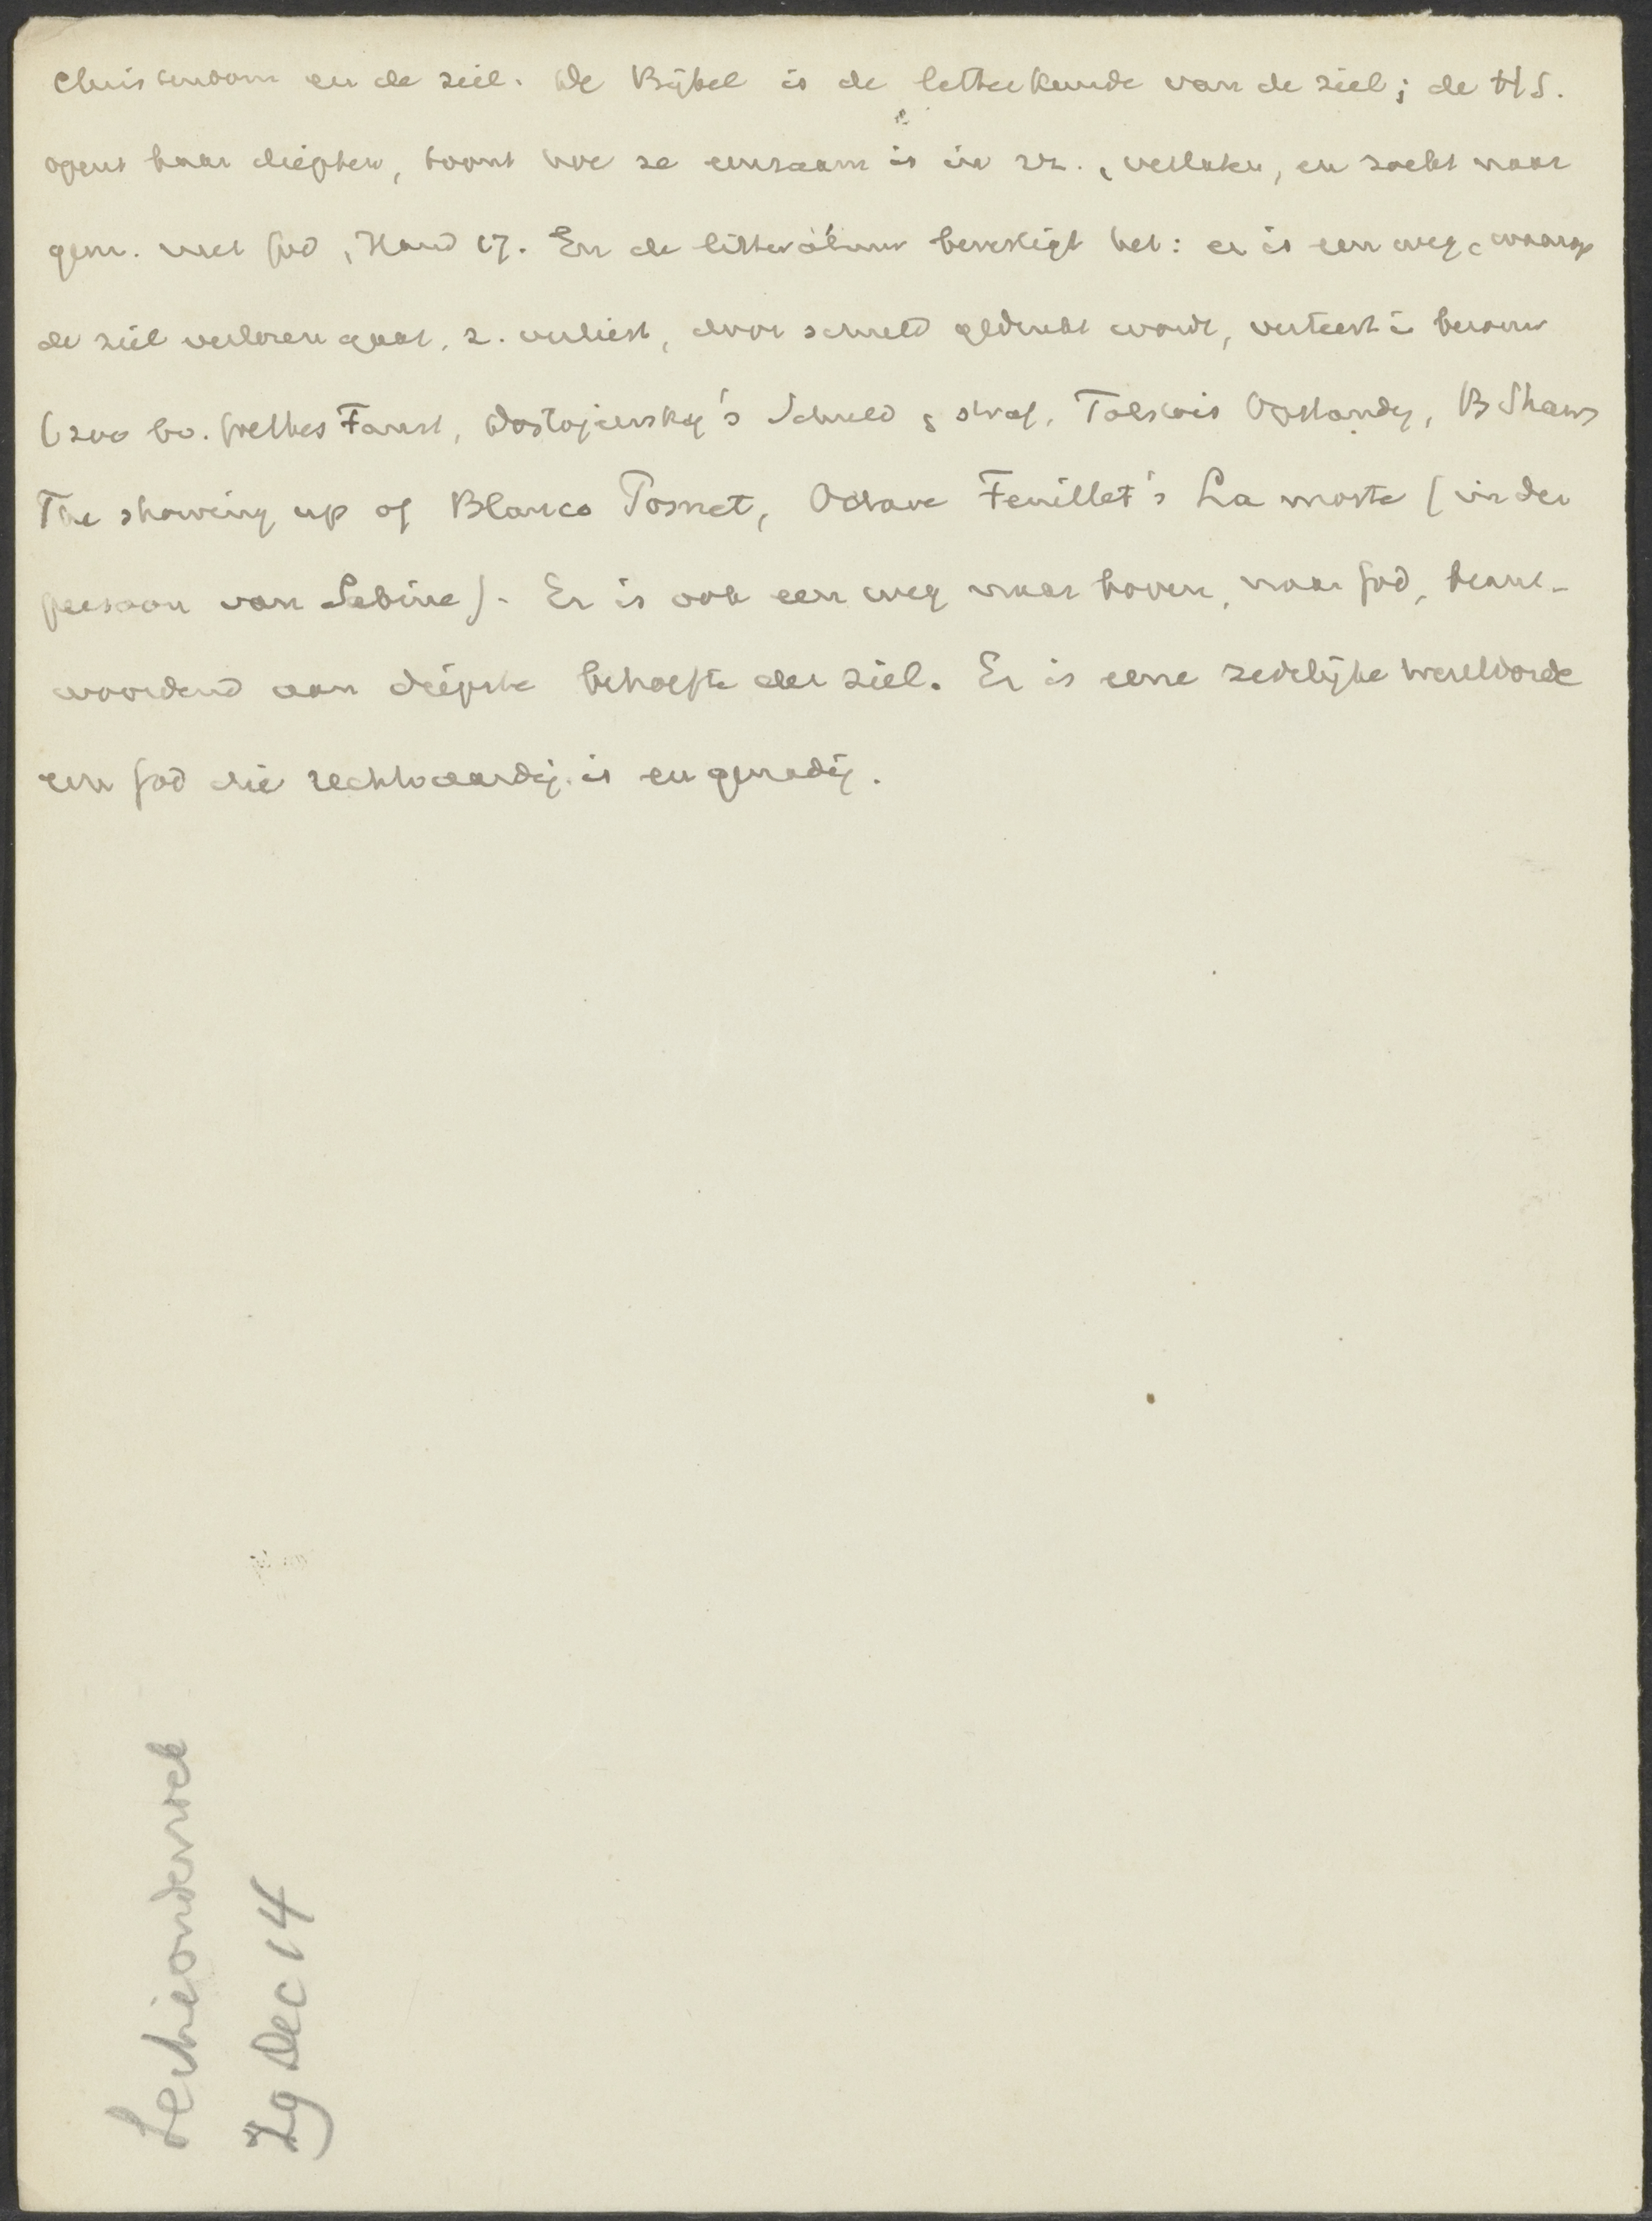 Christendom en de ziel. De Bijbel is de letterkunde van de ziel; de H S.
opent haar diepten, toont hoe ze eenzaam is in zz., verlaten, en zoekt naar
gem. met God, Hand 17. En de litteratuur bevestigt het: er is een weg, waarop
de ziel verloren gaat, z. verliest, door schuld gedrukt wordt, verteert i berouw
(zoo bv. Goethes Faust, Dostojewsky's Schuld & straf, Tolstois Opstandg, B Shaws
The showing up of Blanco Posnet, Octave Feuillet's La morte (in den
persoon van Sabine). Er is ook een weg naar boven, naar God, beant-
woordend aan diepste behoefte der ziel. Er is eene zedelijke wereldorde
een God die rechtvaardig is en genadig.
Lectieonderzoek
29 Dec 14